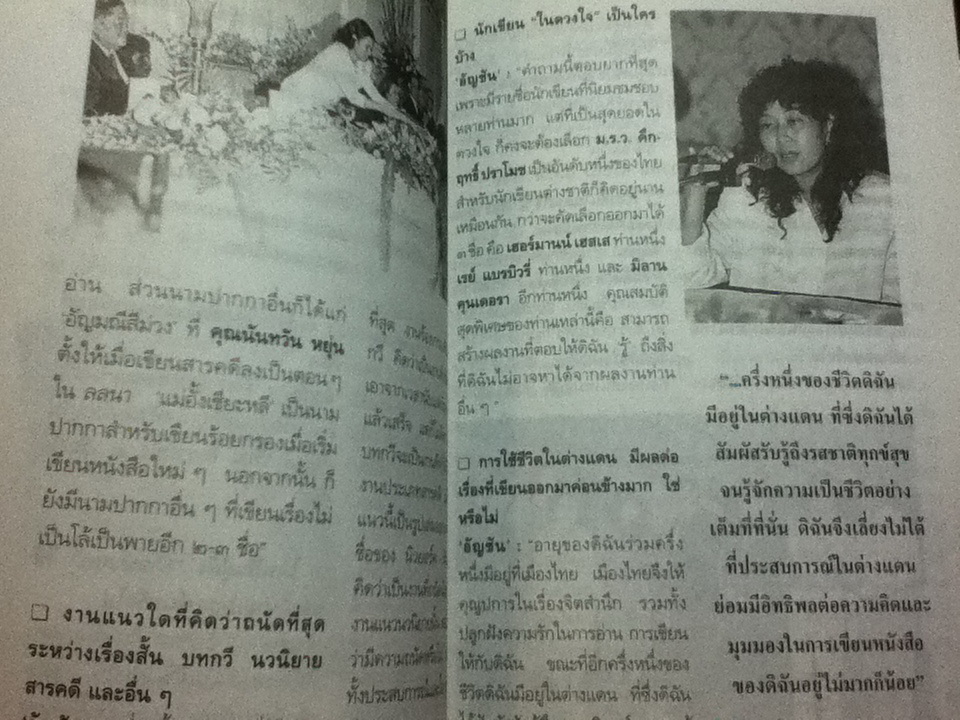 อ่าน ส่วนนามปากกาอื่นก็ได้แก่
'อัญมณีสีม่วง' ที่ คุณนันทวัน หยุ่น
ตั้งให้เมื่อเขียนสารคดีลงเป็นตอนๆ
ใน ลลนา 'แมอั้งเซียะหลี' เป็นนาม
ปากกาสำหรับเขียนร้อยกรองเมื่อเริ่ม
เขียนหนังสือใหม่ ๆ นอกจากนั้น ก็
ยังมีนามปากกาอื่น ๆ ที่เขียนเรื่องไม่
เป็นโล้เป็นพายอีก ๒-๓ ชื่อ"
❏ งานแนวใดที่คิดว่าถนัดที่สุด
ระหว่างเรื่องสั้น บทกวี นวนิยาย
สารคดี และอื่น ๆ
ที่สุด
กวี คิดว่าเป็น
เอาจาก
แล้วเสร็จ
บทกวีจะเป็น
งานประเภท
แนวนี้เป็น
ชื่อของ
คิดว่าเป็นงาน
งานแนวนวนิยาย
ว่ามีความถนัด
ทั้งประสบการณ์
❏ นักเขียน "ในดวงใจ" เป็นใคร
บ้าง
'อัญชัน' : "คำถามนี้ตอบยากที่สุด
เพราะมีรายชื่อนักเขียนที่นิยมชมชอบ
หลายท่านมาก แต่ที่เป็นสุดยอดใน
ดวงใจ ก็คงจะต้องเลือก ม.ร.ว. คึก-
ฤทธิ์ ปราโมช เป็นอันดับหนึ่งของไทย
สำหรับนักเขียนต่างชาติก็คิดอยู่นาน
เหมือนกัน กว่าจะคัดเลือกออกมาได้
๓ ชื่อ คือ เฮอร์มานน์ เฮสเส ท่านหนึ่ง
เรย์ แบรบิวรี่ ท่านหนึ่ง และ มิลาน
คุนเดอรา อีกท่านหนึ่ง คุณสมบัติ
สุดพิเศษของท่านเหล่านี้คือ สามารถ
สร้างผลงานที่ตอบให้ดิฉัน 'รู้' ถึงสิ่ง
ที่ดิฉันไม่อาจหาได้จากผลงานท่าน
อื่น ๆ"
❏ การใช้ชีวิตในต่างแดน มีผลต่อ
เรื่องที่เขียนออกมาค่อนข้างมาก ใช่
หรือไม่
'อัญชัน' : "อายุของดิฉันร่วมครึ่ง
หนึ่งมีอยู่ที่เมืองไทย เมืองไทยจึงให้
คุณูปการในเรื่องจิตสำนึก รวมทั้ง
ปลูกฝังความรักในการอ่าน การเขียน
ให้กับดิฉัน ขณะที่อีกครึ่งหนึ่งของ
ชีวิตดิฉันมีอยู่ในต่างแดน ที่ซึ่งดิฉัน
"...ครึ่งหนึ่งของชีวิตดิฉัน
มีอยู่ในต่างแดน ที่ซึ่งดิฉันได้
สัมผัสรับรู้ถึงรสชาติทุกข์สุข
จนรู้จักความเป็นชีวิตอย่าง
เต็มที่ที่นั่น ดิฉันจึงเลี่ยงไม่ได้
ที่ประสบการณ์ในต่างแดน
ย่อมมีอิทธิพลต่อความคิดและ
มุมมองในการเขียนหนังสือ
ของดิฉันอยู่ไม่มากก็น้อย"